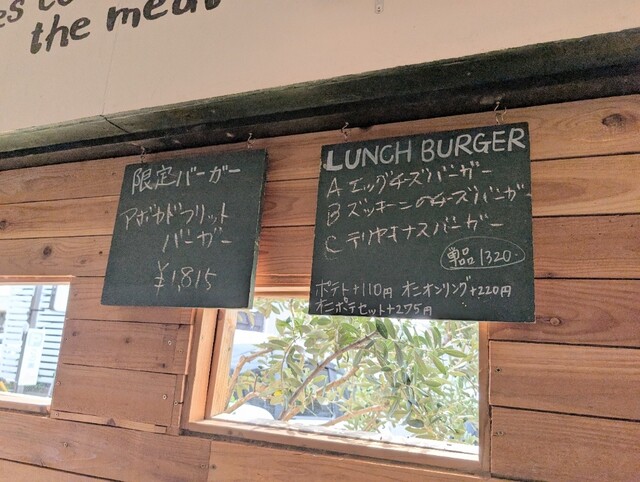 the meat
限定バーガー
アボカドフリット
バーガー
¥1,815
LUNCH BURGER
A エッグチーズバーガー
B ズッキーニのチーズバーガー
C テリヤキナスバーガー
単品 1320-
ポテト+110円 オニオンリング+220円
オニポテセット+275円